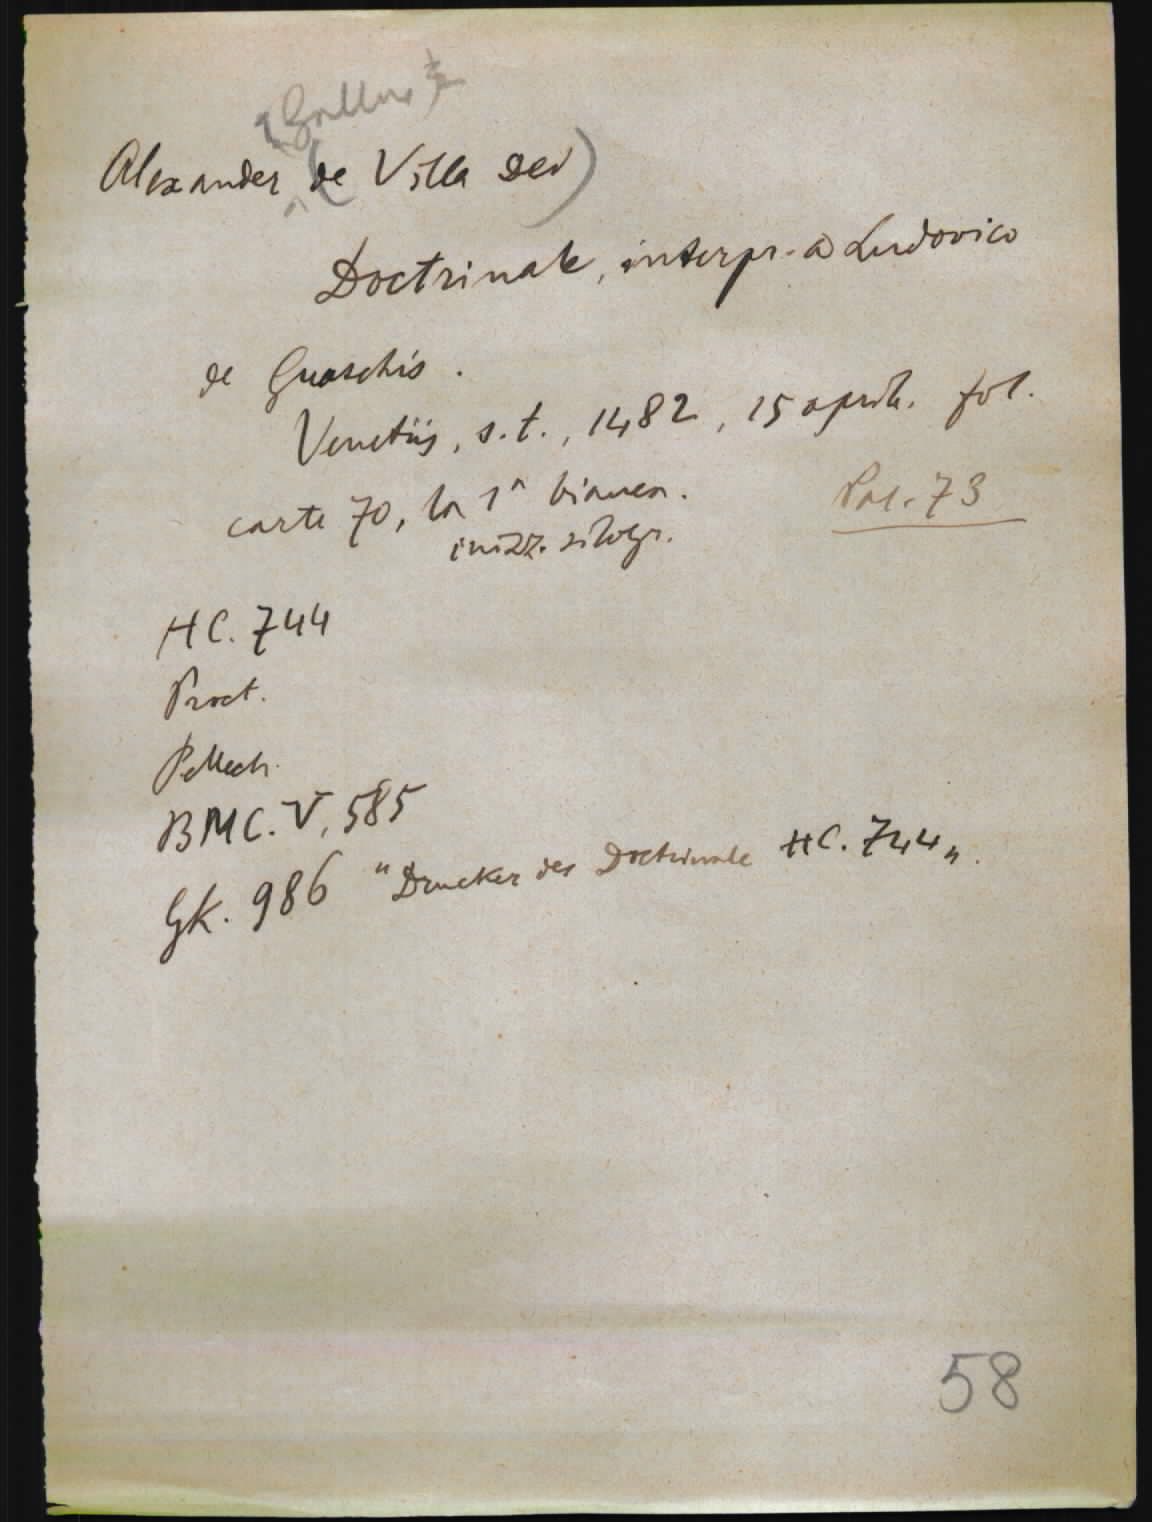 Gallus
Alexander (de Villa Dei)
Doctrinale, interpr. a Ludovico
de Guaschis.
Venetiis, s.t., 1482, 15 april. fol.
carte 70, la 1ª bianca.
Pal. 73
inizz. silogr.
HC. 744
Proct.
Pellech.
BMC. V, 585
GK. 986 "Drucker des Doctrinale HC. 744".
58